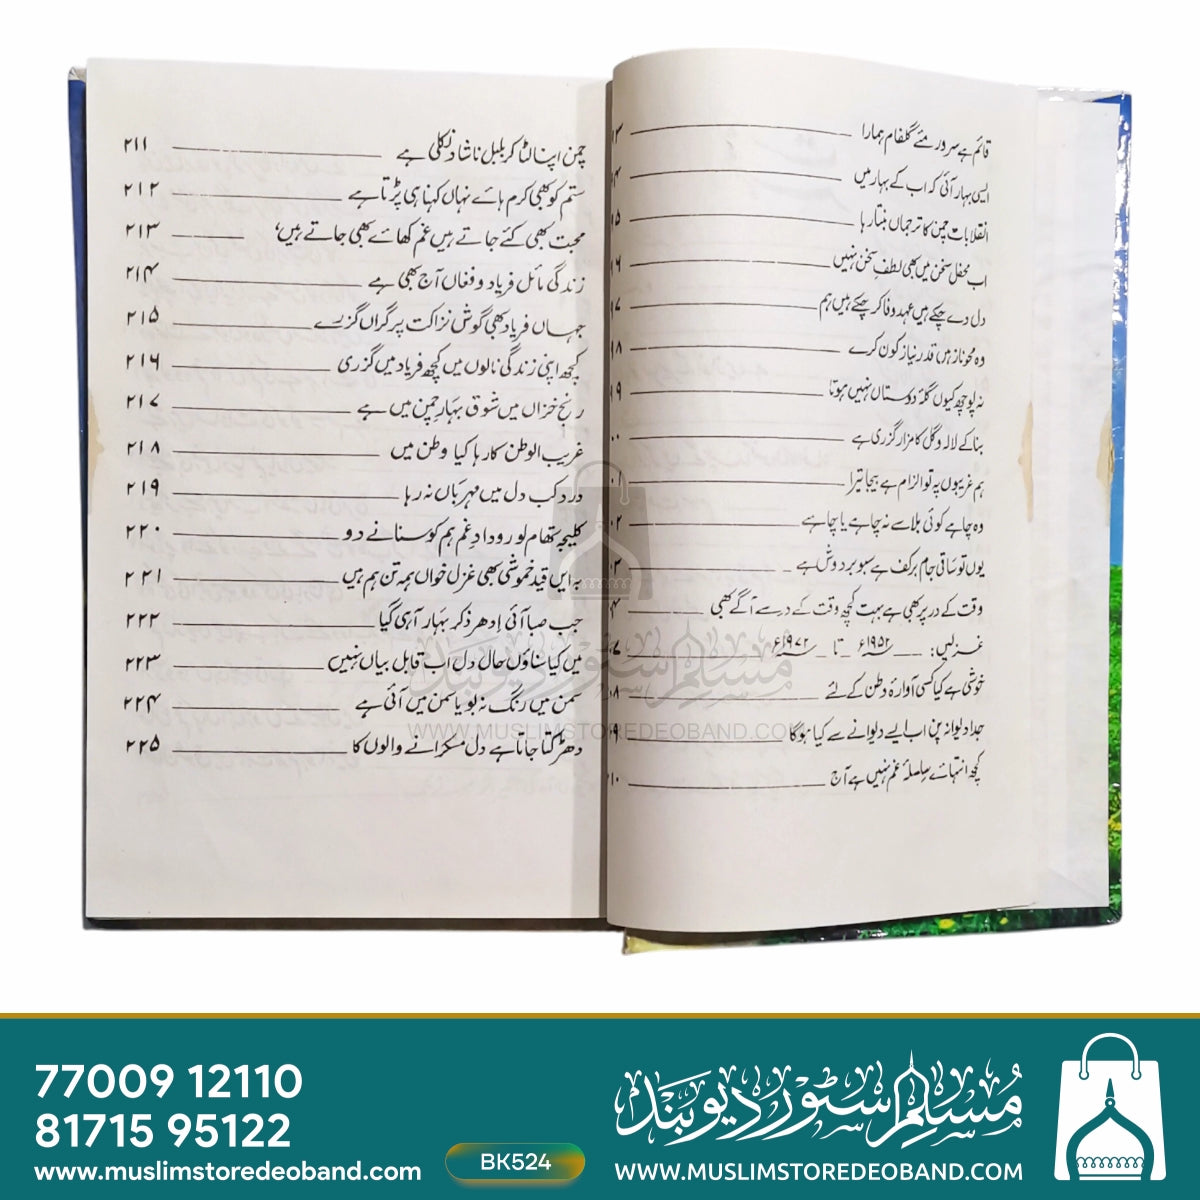 قائم ہے سرور مئے گلفام ہمارا ۱۳
ایسی بہار آئی کہ اب کے بہار میں ۱۴
انقلاباتِ چمن کا ترجماں بنتا رہا ۱۵
اب محفل سخن میں بھی لطفِ سخن نہیں ۱۶
دل دے چکے ہیں عہد وفا کر چکے ہیں ہم ۹۷
وہ محو ناز ہیں قدر نیاز کون کرے ۹۸
نہ پوچھ کیوں گلۂ دوستاں نہیں ہوتا ۱۹
بنا کے لالہ و گل کا مزار گزری ہے ۰۰
ہم غریبوں پہ تو الزام ہے بیجا تیرا ۰۱
وہ چاہے کوئی بلا سے نہ چاہے یا چاہے ۰۲
یوں تو ساقی جام بر کف ہے سبو بردوش ہے ۰۳
وقت کے در پر بھی ہے بہت کچھ وقت کے در سے آگے بھی ۰۴
غزلیں: ۱۹۵۲ء تا ۱۹۷۲ء ۰۷
خوشی ہے کیا کسی آوارہ وطن کے لئے ۰۸
جدا دیوانہ پن اب ایسے دیوانے سے کیا ہوگا ۰۹
کچھ انتہائے سلسلۂ غم نہیں ہے آج ۱۰
چمن اپنا لٹا کر بلبل ناشاد نکلی ہے ۲۱۱
ستم کو بھی کرم ہائے نہاں کہنا ہی پڑتا ہے ۲۱۲
محبت بھی کئے جاتے ہیں غم کھائے بھی جاتے ہیں، ۲۱۳
زندگی مائل فریاد و فغاں آج بھی ہے ۲۱۴
جہاں فریاد بھی گوش نزاکت پر گراں گزرے ۲۱۵
کچھ اپنی زندگی نالوں میں کچھ فریاد میں گزری ۲۱۶
رنج خزاں میں شوق بہار چمن میں ہے ۲۱۷
غریب الوطن کا رہا کیا وطن میں ۲۱۸
درد کب دل میں مہرباں نہ رہا ۲۱۹
کلیجہ تھام لو رودادِ غم ہم کو سنانے دو ۲۲۰
بہ ایں قید خموشی بھی غزل خواں ہمہ تن ہم ہیں ۲۲۱
جب صبا آئی اِدھر ذکر بہار آہی گیا ۲۲۲
میں کیا سناؤں حال دل اب قابل بیاں نہیں ۲۲۳
سمن میں رنگ نہ بو یاسمن میں آئی ہے ۲۲۴
دھڑکتا جاتا ہے دل مسکرانے والوں کا ۲۲۵
مسلم سٹور دیوبند
WWW.MUSLIMSTOREDEOBAND.COM
77009 12110
81715 95122
www.muslimstoredeoband.com
BK524
مسلم سٹور دیوبند
www.MUSLIMSTOREDEOBAND.COM